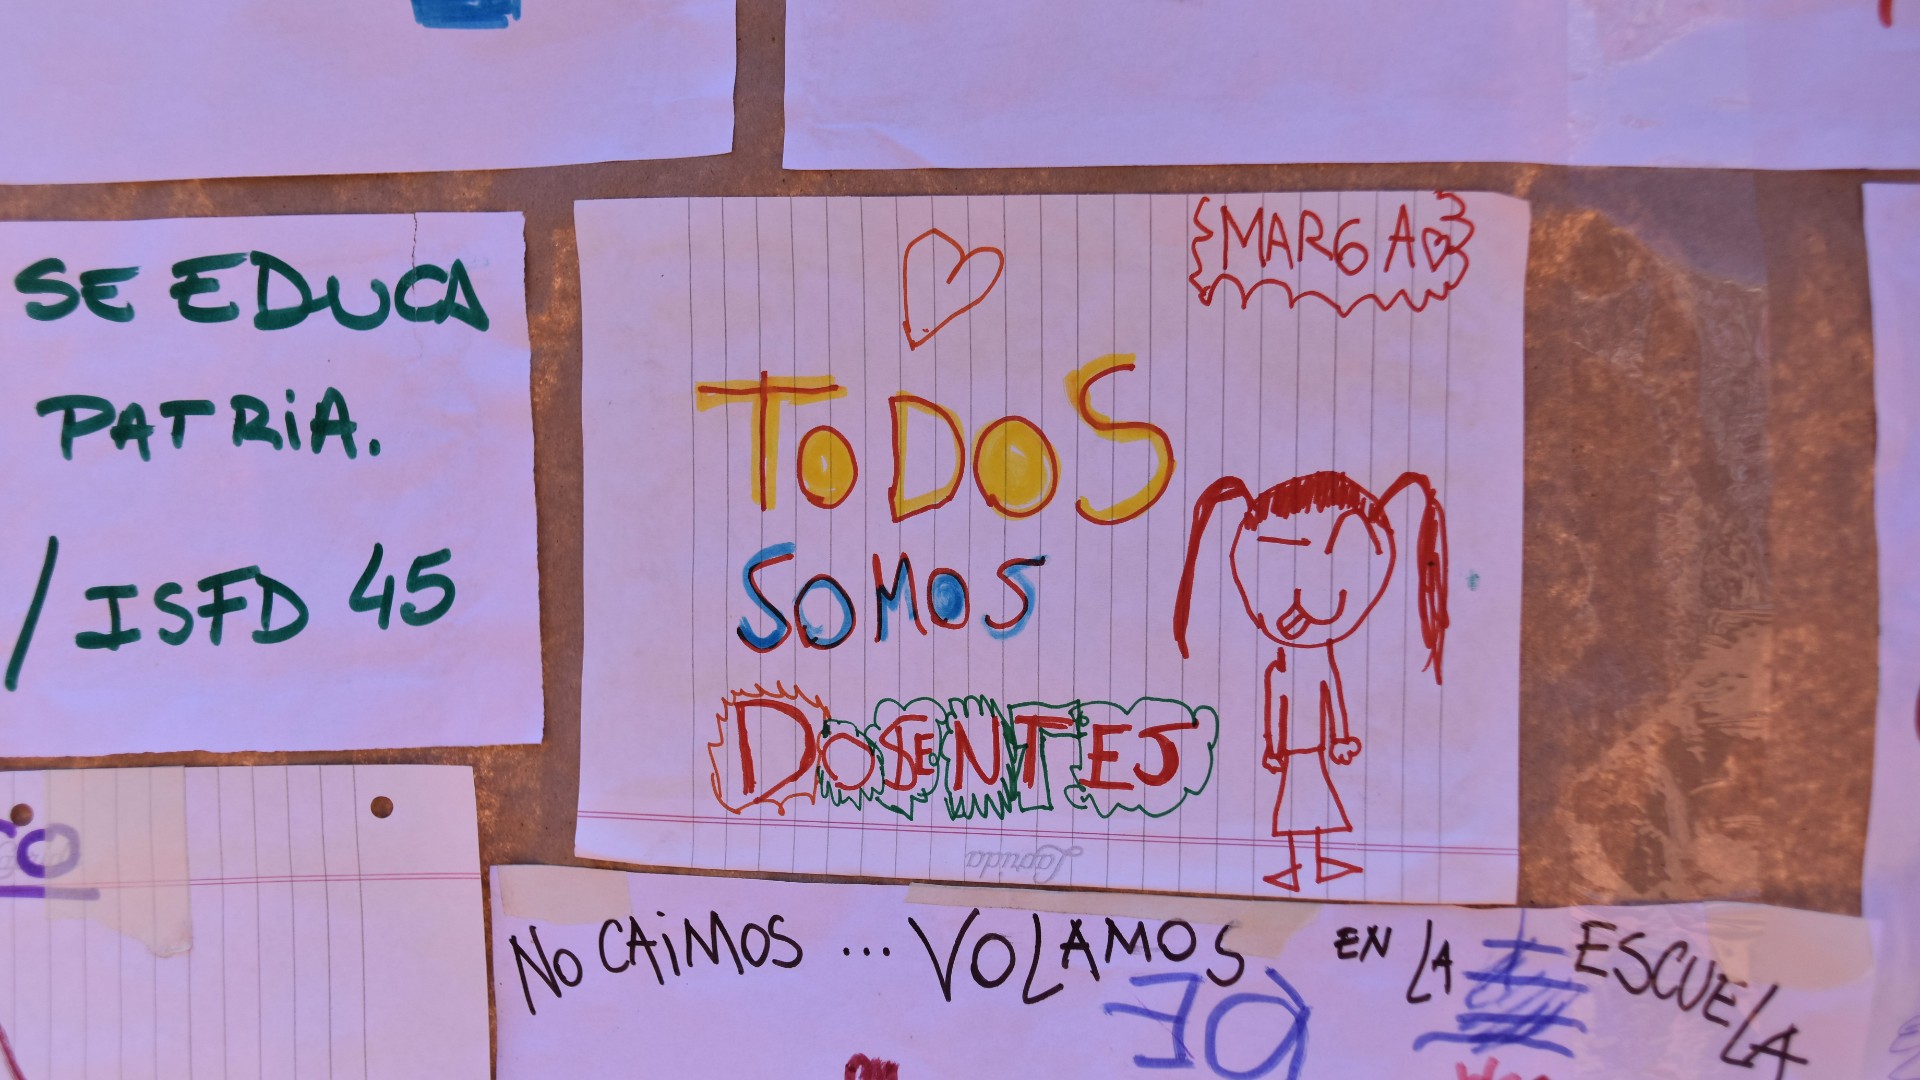 SE EDUCA
PATRIA.
/ISFD 45
MARGA
TODOS
SOMOS
DOSENTES
Laprida
NO CAIMOS ... VOLAMOS EN LA ESCUELA